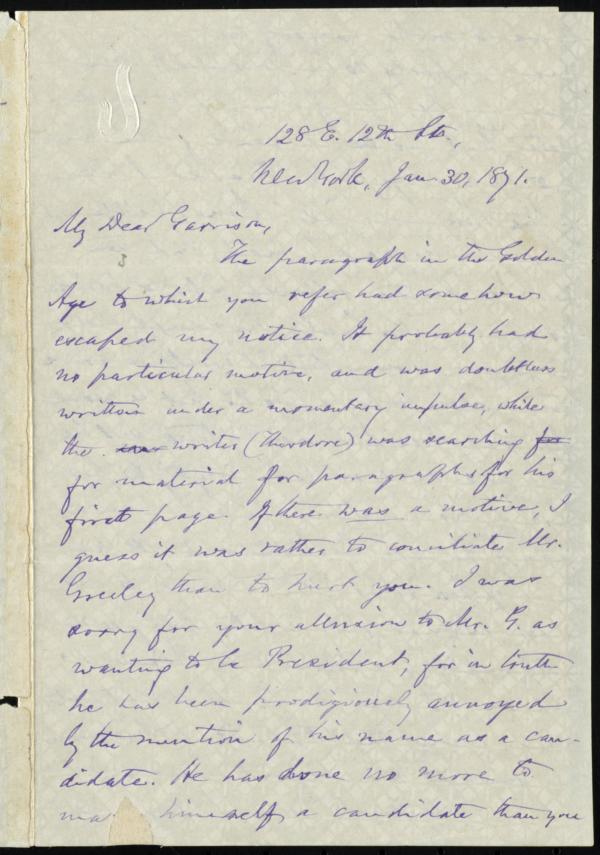 128 E. 12th St.,
New York, Jan 30, 1871.
My Dear Garrison,
The paragraph in the Golden
Age to which you refer had somehow
escaped my notice. It probably had
no particular motive, and was doubtless
written under a momentary impulse, while
the writer (Theodore) was searching for
for material for paragraphs for his
first page. If there was a motive, I
guess it was rather to conciliate Mr.
Greeley than to hurt you. I was
sorry for your allusion to Mr. G. as
wanting to be President, for in truth
he has been prodigiously annoyed
by the mention of his name as a can-
didate. He has done no more to
ma himself a candidate than you